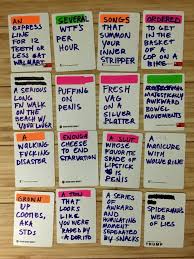 AN
EXPRESS
LINE FOR 12
TEETH OR
LESS @AT
WALMART
SEVERAL
WTF'S
PER
HOUR
SONGS
THAT
SUMMON
YOUR
INNER
STRIPPER
ORDERED
TO GET IN
THE BASKET
OF A COP
ON A
BIKE
A SERIOUS
LONG
FN WALK
ON THE
BEACH W/
YOUR LOVER
PUFFING
ON
PENIS
FRESH
VAG
ON A
SILVER
PLATTER
MAJESTICALLY
AWKWARD
BOWEL
MOVEMENTS
A
WALKING
FUCKING
DISASTER
ENOUGH
CHEESE
TO END
STARVATION
A SLUT
WHOSE
FAVORITE
SHADE OF
LIPSTICK
IS
PENIS
A
MANICURE
WITH
WOLVERINE
GROWN
UP
COOTIES,
AKA
STDS
THAT
LOOKS
LIKE
YOU WERE
RAPED BY
A DORITO
A SERIES
OF
AWKWARD
AND
HUMILIATING
MOMENT
SEPARATED
BY SNACKS
SPIDERMANS
WEB
OF LIES